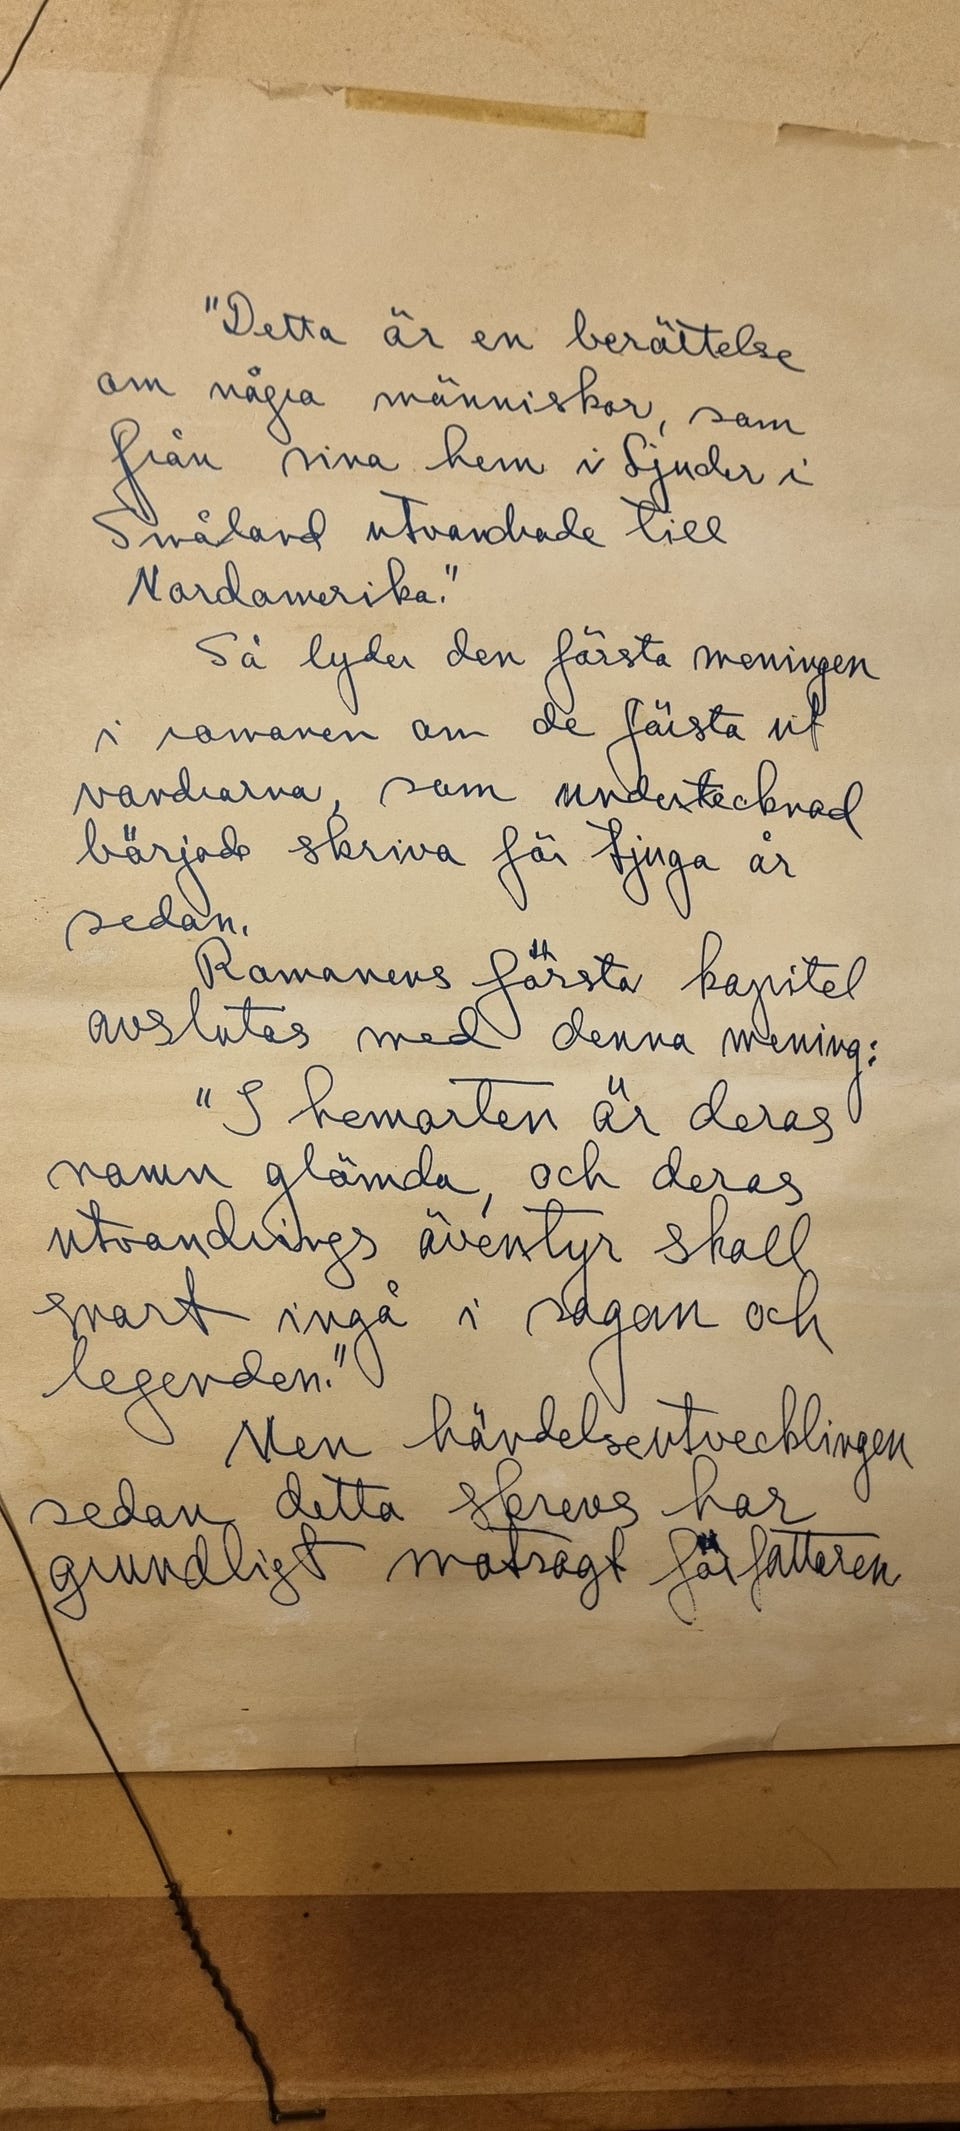 "Detta är en berättelse
om några människor, som
från sina hem i Ljuder i
Småland utvandrade till
Nordamerika."
Så lyder den första meningen
i romanen om de första ut
vandrarna, som undertecknad
började skriva för tjuga år
sedan.
Romanens första kapitel
avslutas med denna mening:
"I hemorten är deras
namn glömda, och deras
utvandrings äventyr skall
snart ingå i sagan och
legenden."
Men händelseutvecklingen
sedan detta skrevs har
grundligt motsagt författaren